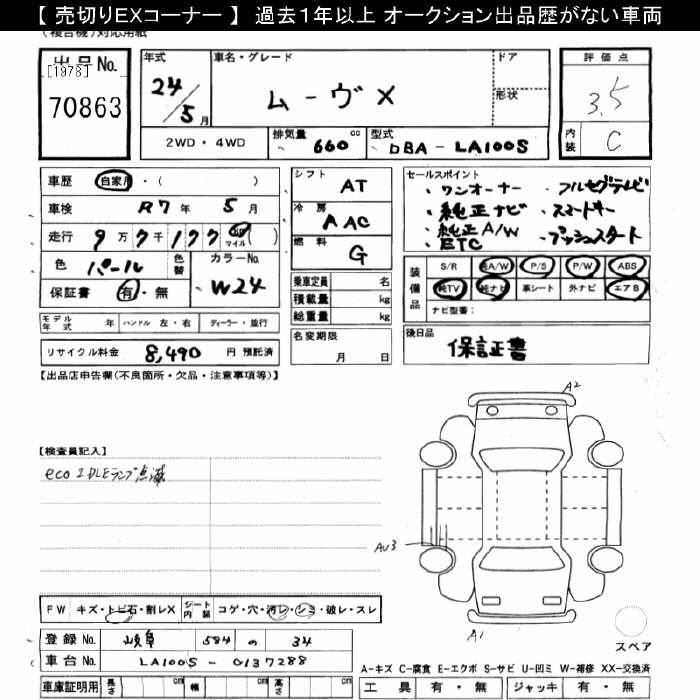 【 売切りEXコーナー 】 過去１年以上 オークション出品歴がない車両
(複合機)対応用紙
出品No. [1978] 70863
年式 24/5月
車名・グレード ムーヴX
ドア
形状
2WD・4WD
排気量 660 cc
型式 DBA-LA100S
評価点 3.5
内装 C
車歴 自家用・( )
車検 R7年 5月
走行 9万7千177 km マイル ( )
色 パール 色替 カラーNo. W24
保証書 有・無
シフト AT
冷房 AAC
燃料 G
乗車定員 名
積載量 kg
総重量 kg
セールスポイント
・ワンオーナー ・フルセグテレビ
・純正ナビ ・スマートキー
・純正A/W ・プッシュスタート
・ETC
装備品 S/R 純A/W P/S P/W ABS
純TV 純ナビ 革シート 外ナビ エアB
ナビ型番：
モデル年式 年 ハンドル 左・右 ディーラー・並行
名変期限 月 日
後日品 保証書
リサイクル料金 8,490 円 預託済
【出品店申告欄(不良箇所・欠品・注意事項等)】
【検査員記入】
eco IDLEランプ点滅
A2
AU3
A1
スペア
FW キズ・トビ石・割レX シート内装 コゲ・穴・汚レ・シミ・破レ・スレ
登録No. 岐阜 584 の 34
車台No. LA100S-0137288
車庫証明用 長さ cm 幅 cm 高さ cm
A-キズ C-腐食 E-エクボ S-サビ U-凹ミ W-補修 XX-交換済
工具 有・無 ジャッキ 有・無